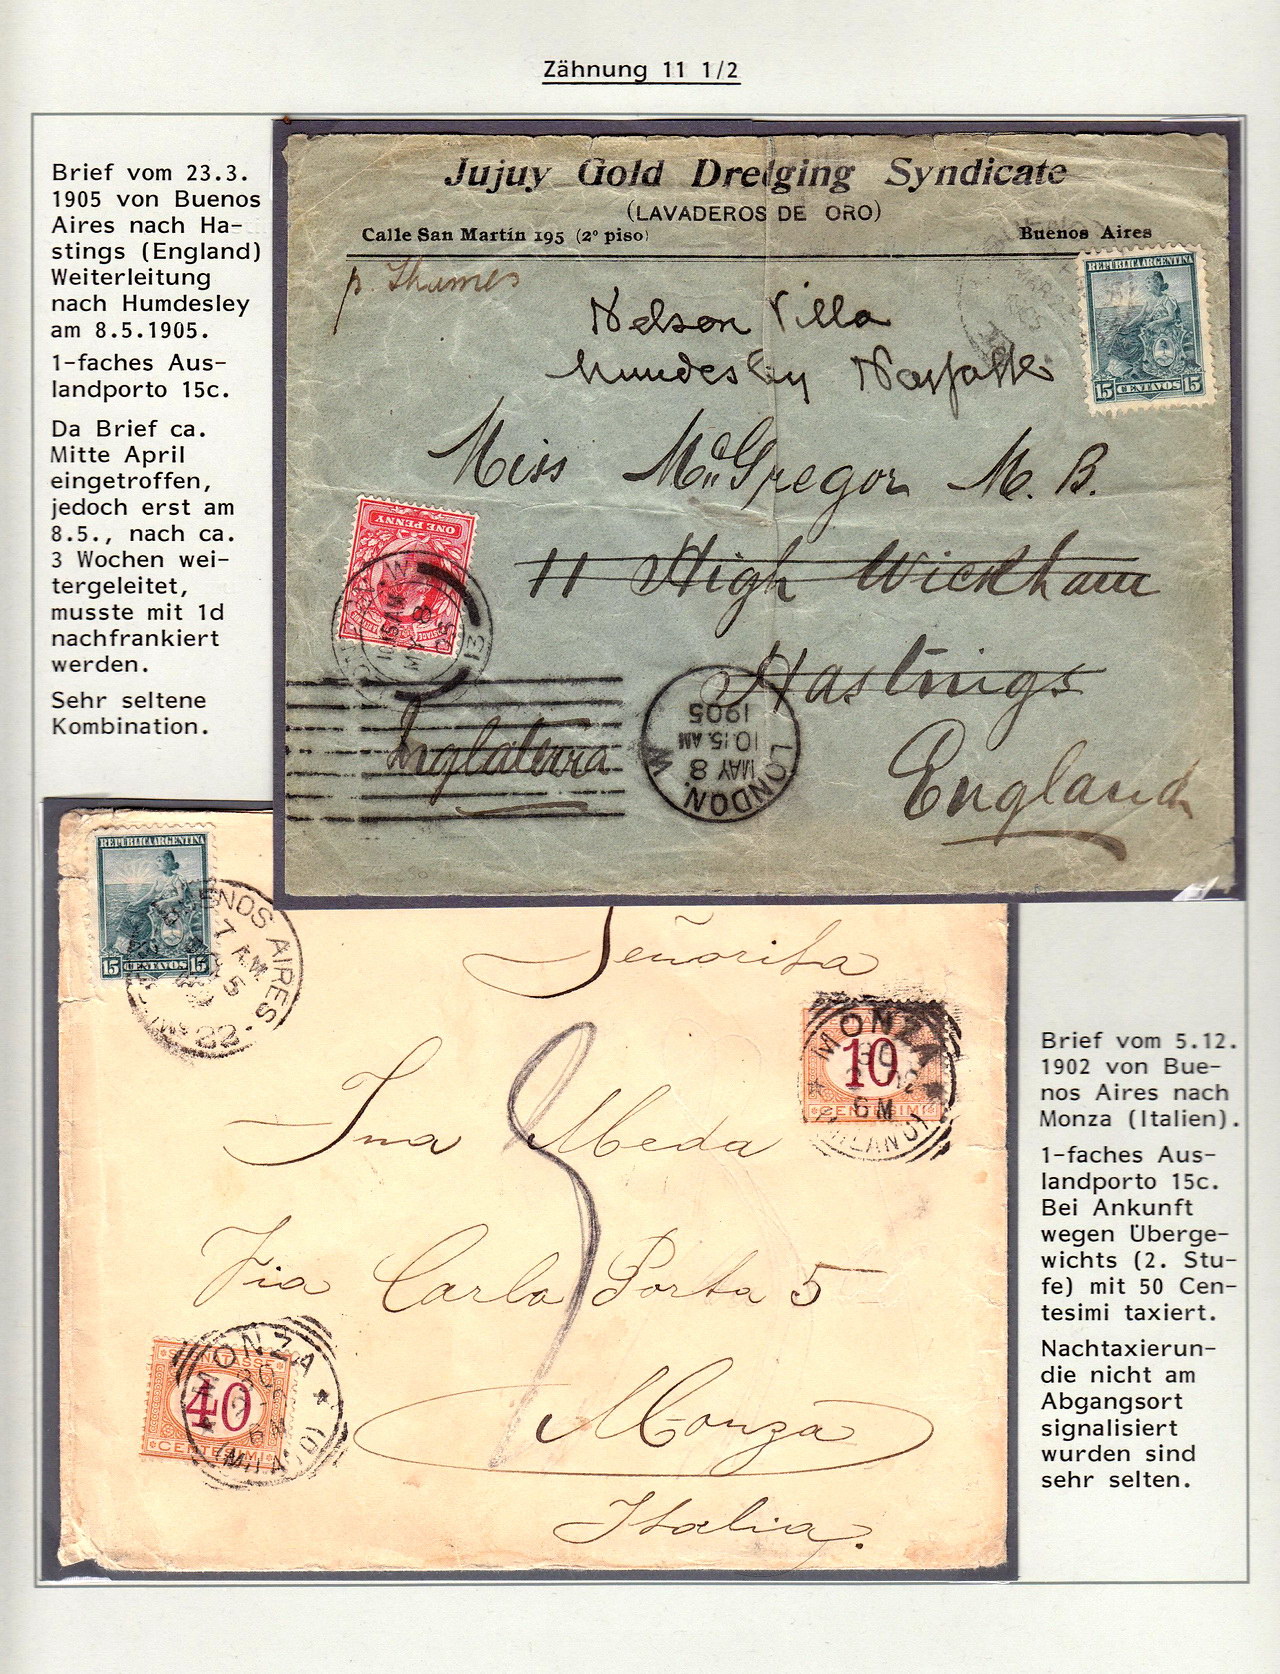 Zähnung 11 1/2
Brief vom 23.3.
1905 von Buenos
Aires nach Ha-
stings (England)
Weiterleitung
nach Humdesley
am 8.5.1905.
1-faches Aus-
landporto 15c.
Da Brief ca.
Mitte April
eingetroffen,
jedoch erst am
8.5., nach ca.
3 Wochen wei-
tergeleitet,
musste mit 1d
nachfrankiert
werden.
Sehr seltene
Kombination.
Jujuy Gold Dredging Syndicate
(LAVADEROS DE ORO)
Calle San Martín 195 (2º piso)
Buenos Aires
p. Thames
REPUBLICA ARGENTINA
15 CENTAVOS 15
Nelson Villa
Mundesley
Miss McGregor M. B.
11 High Wickham
Hastings
England
Inglaterra
ONE PENNY
10.15 AM
MY 8
05
13
LONDON. W
MAY 8
10.15. AM
1905
REPUBLICA ARGENTINA
15 CENTAVOS 15
BUENOS AIRES
7 A.M.
5
22
Señorita
Ina Meda
Via Carlo Porta 5
Monza
Italia.
10
CENTESIMI
MONZA
6 M
(MILANO)
SEGNATASSE
40
CENTESIMI
MONZA
6 M
(MILANO)
Brief vom 5.12.
1902 von Bue-
nos Aires nach
Monza (Italien).
1-faches Aus-
landporto 15c.
Bei Ankunft
wegen Überge-
wichts (2. Stu-
fe) mit 50 Cen-
tesimi taxiert.
Nachtaxierun-
die nicht am
Abgangsort
signalisiert
wurden sind
sehr selten.